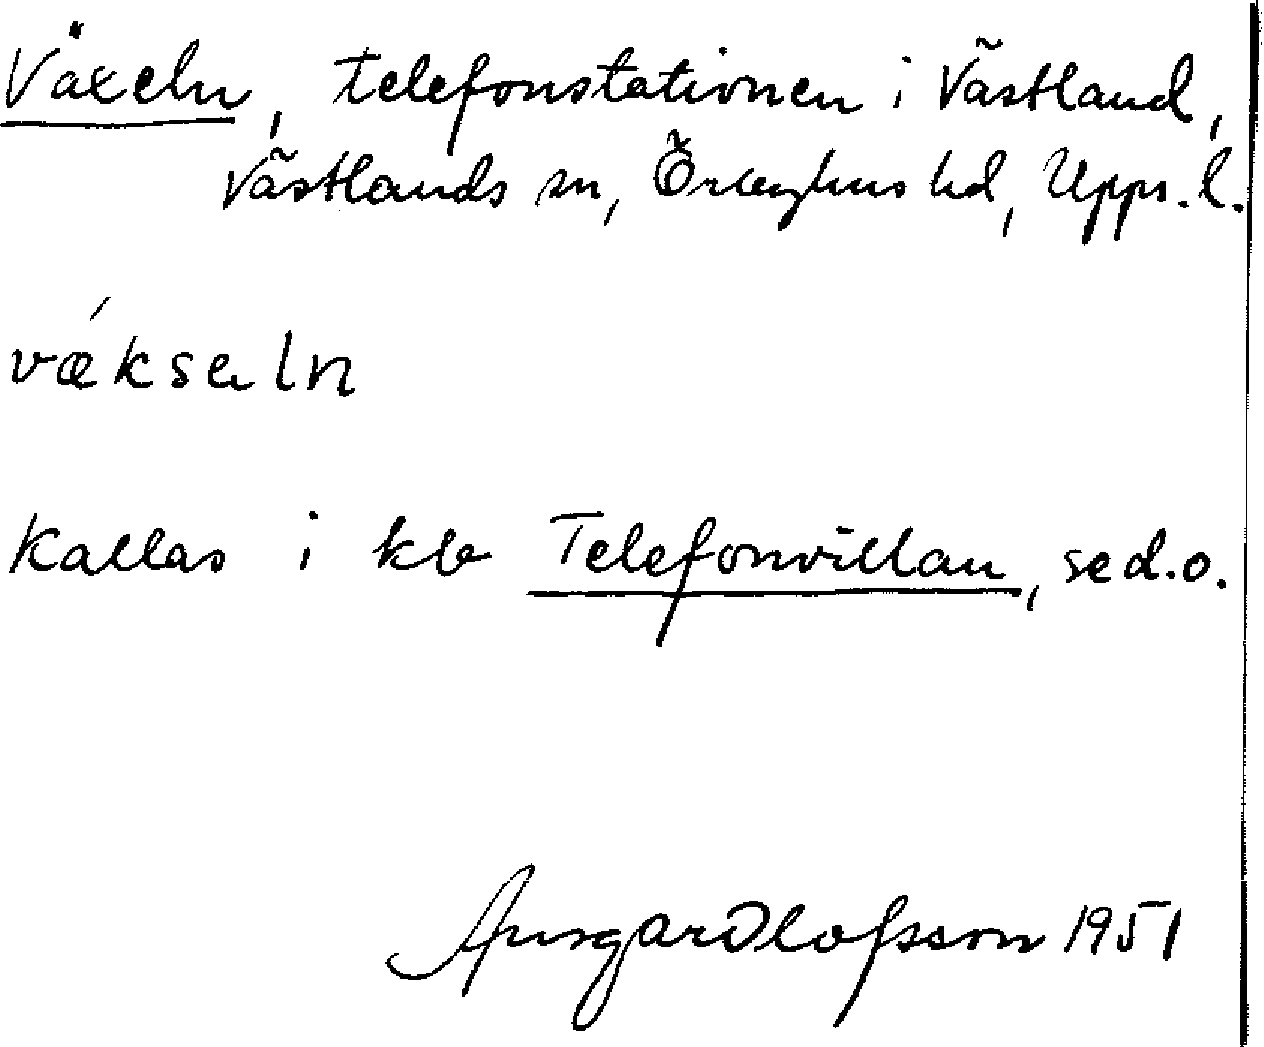 Växeln, telefonstationen i Västland,
Västlands sn, Örbyhus hd, Upps. l.
vǽksəln
Kallas i kb Telefonvillan, se d.o.
Ansgar Olofsson 1951